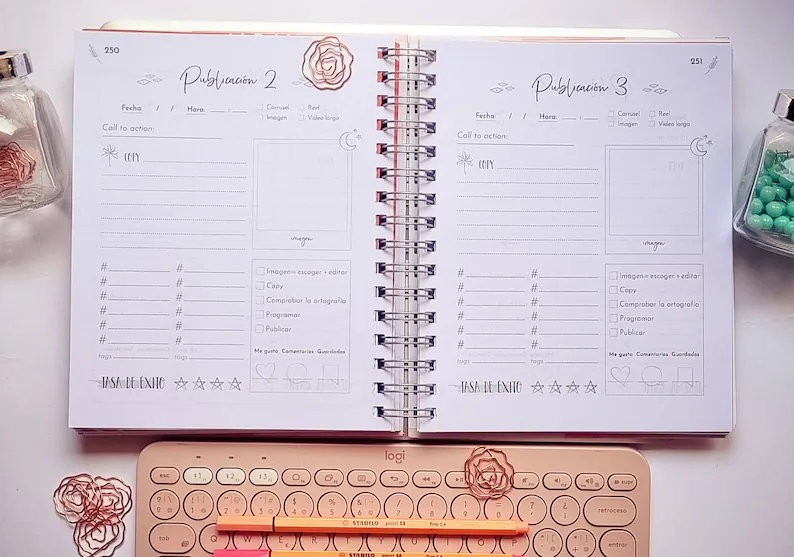 250
Publicación 2
Fecha: / / Hora: __:__
Carrusel Reel
Imagen Video largo
Call to action:
COPY
imagen
# #
# #
# #
# #
# #
# #
tags tags
Imagen= escoger + editar
Copy
Comprobar la ortografía
Programar
Publicar
Me gusta Comentarios Guardados
TASA DE ÉXITO
251
Publicación 3
Fecha: / / Hora: __:__
Carrusel Reel
Imagen Video largo
Call to action:
COPY
imagen
# #
# #
# #
# #
# #
tags tags
Imagen= escoger + editar
Copy
Comprobar la ortografía
Programar
Publicar
Me gusta Comentarios Guardados
TASA DE ÉXITO
logi
esc 1 2 3 supr
retroceso
STABILO point 88 fine 0.4
tab Q W E R T Y U I O P entrar
STABILO point 88 fine 0.4